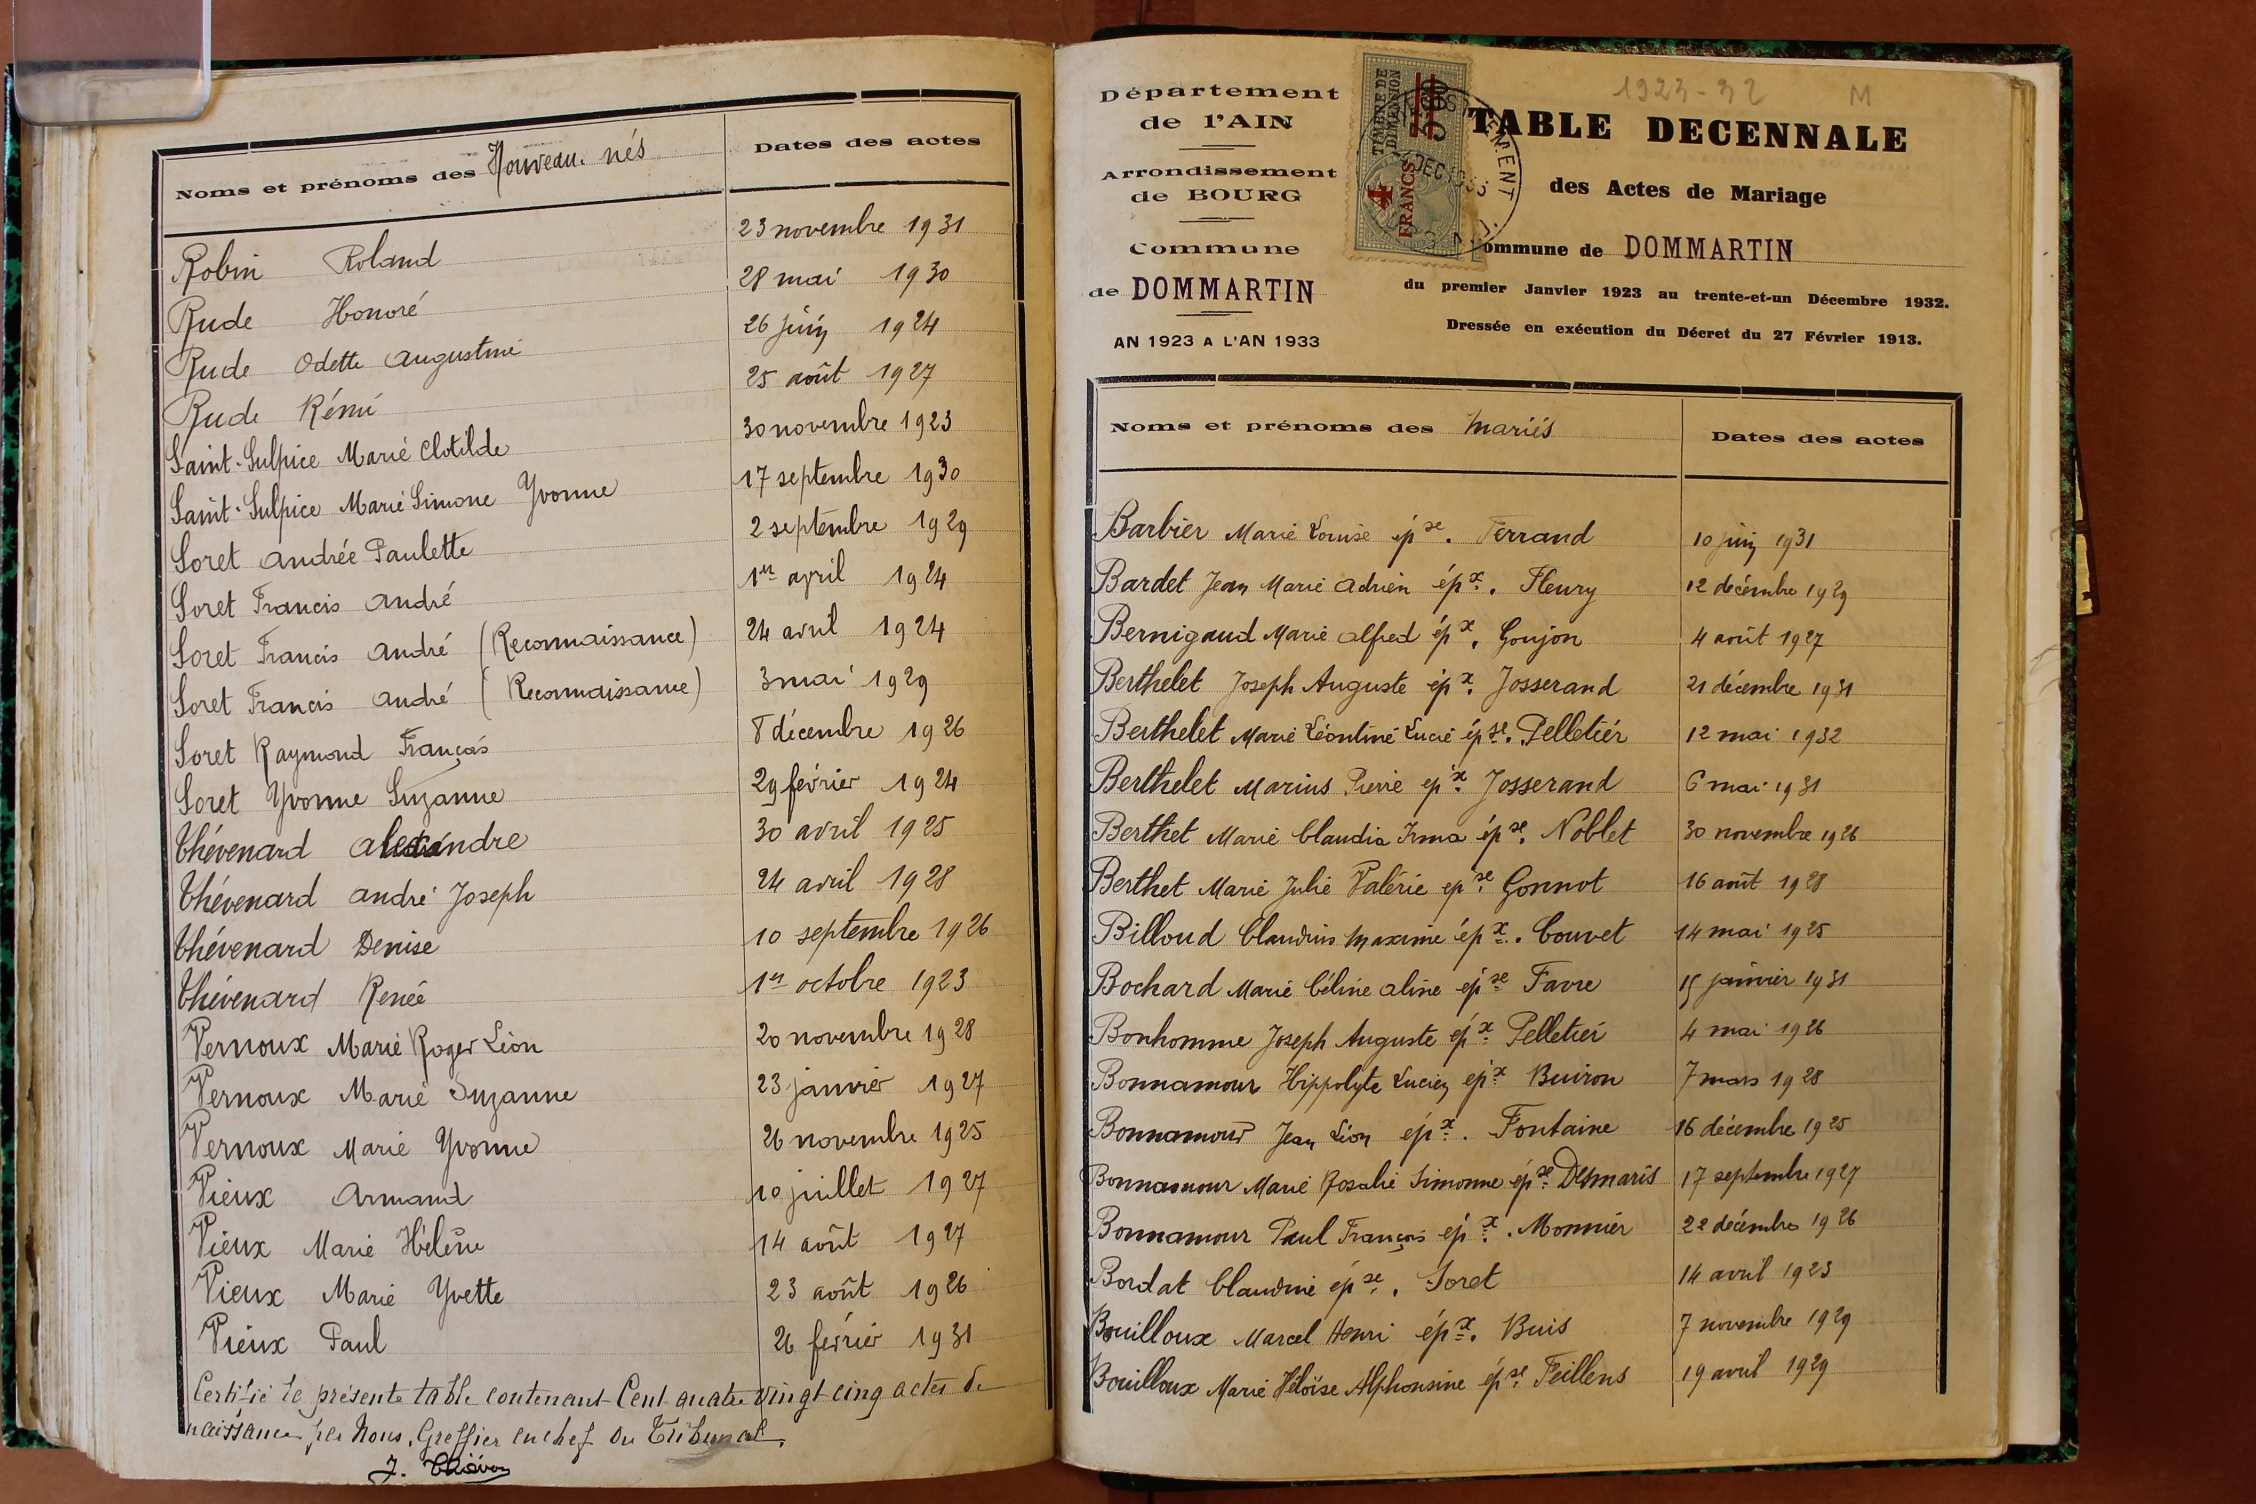 Noms et prénoms des Nouveau. nés
Dates des actes
Robin Roland 23 novembre 1931
Rude Honoré 28 mai 1930
Rude Odette Augustine 26 juin 1924
Rude Rémi 25 août 1927
Saint-Sulpice Marie Clotilde 30 novembre 1923
Saint-Sulpice Marie Simone Yvonne 17 septembre 1930
Soret Andrée Paulette 2 septembre 1929
Soret Francis André 1er april 1924
Soret Francis André (Reconnaissance) 24 avril 1924
Soret Francis André (Reconnaissance) 3 mai 1929
Soret Raymond François 8 décembre 1926
Soret Yvonne Suzanne 29 février 1924
Thévenard Alexandre 30 avril 1925
Thévenard André Joseph 24 avril 1928
Thévenard Denise 10 septembre 1926
Thévenard Renée 1er octobre 1923
Vernoux Marie Roger Léon 20 novembre 1928
Vernoux Marie Suzanne 23 janvier 1927
Vernoux Marie Yvonne 26 novembre 1925
Vieux Armand 10 juillet 1927
Vieux Marie Hélène 14 août 1927
Vieux Marie Yvette 23 août 1926
Vieux Paul 26 février 1931
Certifié le présente table contenant Cent quatre vingt cinq actes de
naissance par Nous, Greffier en chef du Tribunal.
Département
de l'AIN
Arrondissement
de BOURG
Commune
de DOMMARTIN
AN 1923 A L'AN 1933
TIMBRE DE
DIMENSION
4
FRANCS
DEC
1923-32 M
TABLE DECENNALE
des Actes de Mariage
ommune de DOMMARTIN
du premier Janvier 1923 au trente-et-un Décembre 1932.
Dressée en exécution du Décret du 27 Février 1913.
Noms et prénoms des Mariés
Dates des actes
Barbier Marie Louise épse. Ferrand 10 juin 1931
Bardet Jean Marie Adrien épx. Fleury 12 décembre 1929
Bernigaud Marie Alfred épx. Goujon 4 août 1927
Berthelet Joseph Auguste épx. Josserand 21 décembre 1931
Berthelet Marie Léontine Lucie épse. Pelletier 12 mai 1932
Berthelet Marius Pierre epx. Josserand 6 mai 1931
Berthet Marie Claudia Irma épse. Noblet 30 novembre 1926
Berthet Marie Julie Valérie epse. Gonnot 16 août 1928
Billoud Claudius Maxime épx. Couvet 14 mai 1925
Bochard Marie Céline Aline épse Favre 15 janvier 1931
Bonhomme Joseph Auguste épx. Pelletier 4 mai 1926
Bonnamour Hippolyte Lucien épx. Buiron 7 mars 1928
Bonnamour Jean Léon épx. Fontaine 16 décembre 1925
Bonnamour Marie Rosalie Simonne épse. Desmaris 17 septembre 1927
Bonnamour Paul François épx. Monnier 22 décembre 1926
Bordat Claudine épse. Soret 14 avril 1923
Bouilloux Marcel Henri épx. Buis 7 novembre 1929
Bouilloux Marie Héloïse Alphonsine épse. Feillens 19 avril 1929